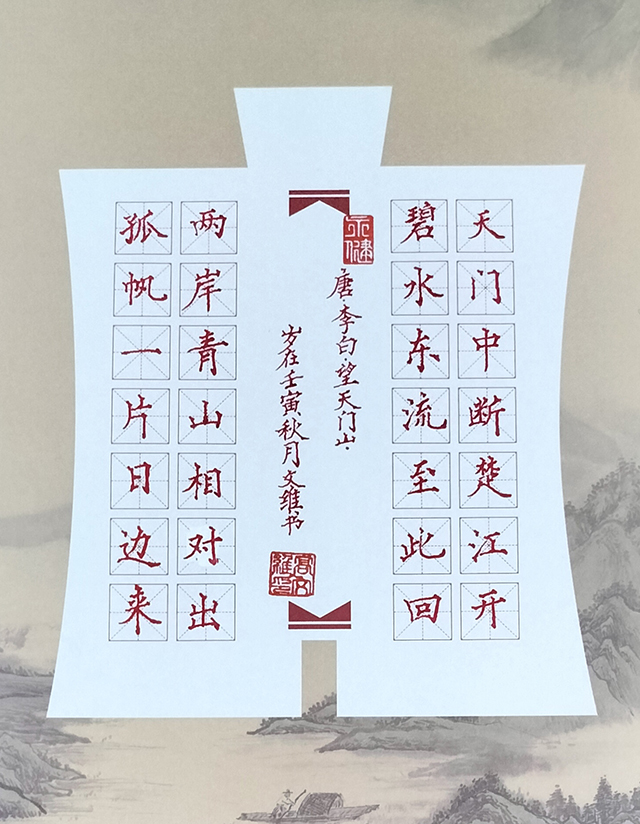 天门中断楚江开
碧水东流至此回
唐·李白·望天门山·
岁在壬寅秋月文维书
两岸青山相对出
孤帆一片日边来